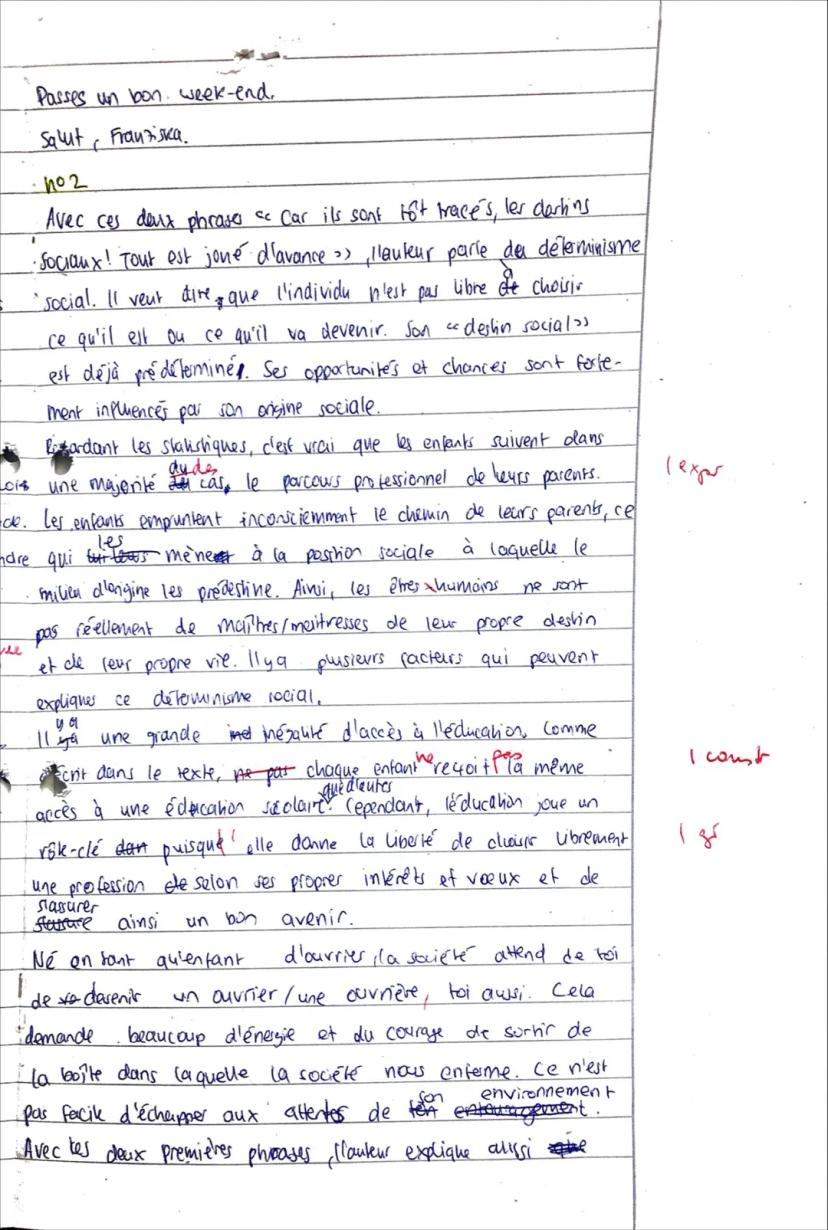 Passes un bon week-end.
Salut, Franziska.
no 2
Avec ces deux phrases « Car ils sont tôt tracés, les destins
sociaux! Tout est joué d'avance », l'auteur parle du déterminisme
social. Il veut dire que l'individu n'est pas libre de choisir
ce qu'il est ou ce qu'il va devenir. Son « destin social »
est déjà prédéterminé. Ses opportunités et chances sont forte-
ment influencés par son origine sociale.
Regardant les statistiques, c'est vrai que les enfants suivent dans
une majorité du des cas, le parcours professionnel de leurs parents.
1 expr
Les enfants empruntent inconsciemment le chemin de leurs parents, ce
qui les mène à la position sociale à laquelle le
milieu d'origine les prédestine. Ainsi, les êtres humains ne sont
pas réellement de maîtres/meitresses de leur propre destin
et de leur propre vie. Il y a plusieurs facteurs qui peuvent
expliquer ce déterminisme social.
Il y a une grande inégalité d'accès à l'éducation, comme
écrit dans le texte, ne pas chaque enfant ne reçoit pas la même
1 const
accès à une éducation scolaire que d'autres. Cependant, l'éducation joue un
rôle-clé puisqu' elle donne la liberté de choisir librement
1 gr
une profession selon ses propres intérêts et vœux et de
s'assurer ainsi un bon avenir.
Né en tant qu'enfant d'ouvrier, la société attend de toi
de devenir un ouvrier/une ouvrière, toi aussi. Cela
demande beaucoup d'énergie et du courage de sortir de
la boîte dans laquelle la société nous enferme. Ce n'est
pas facile d'échapper aux attentes de son environnement.
Avec les deux premières phrases, l'auteur explique aussi